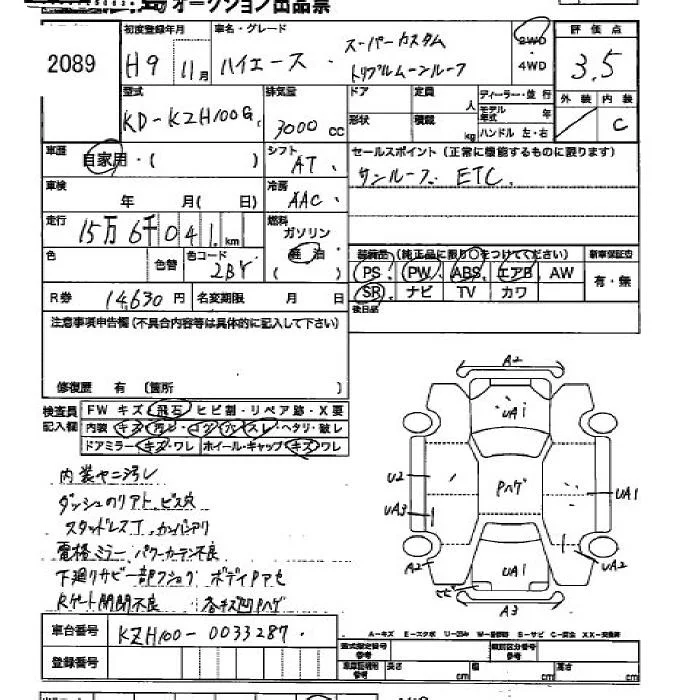 オークション出品票
2089
初度登録年月 車名・グレード 2WD 評価点
H9 11月 ハイエース・スーパーカスタム
トリプルムーンルーフ 4WD 3.5
型式 排気量 ドア 定員 人 ディーラー・並行 外装 内装
KD-KZH100G 3000cc 形状 積載 kg モデル年式 年 C
ハンドル 左・右
車歴 自家用・( ) シフト AT セールスポイント(正常に機能するものに限ります)
サンルーフ ETC.
車検 年 月( 日) 冷房 AAC
走行 15万6千041km 燃料 ガソリン
軽油
( )
色 色替 色コード 2BY
装備品(純正品に限り○をつけてください) 新車保証書
PS PW ABS エアB AW 有・無
SR ナビ TV カワ
R券 14,630円 名変期限 月 日
後日品
注意事項申告欄(不具合内容等は具体的に記入して下さい)
修復歴 有 〔箇所 〕
検査員記入欄
FW キズ・飛石・ヒビ割・リペア跡・X要
内装・キズ・汚レ・コゲ・穴・スレ・ヘタリ・破レ
ドアミラー・キズ・ワレ ホイール・キャップ・キズ・ワレ
内装ヤニ汚レ
ダッシュのリアト、ビス穴
スタッドレスT、カンバンアリ
電格ミラー、パワーカーテン不良
下廻りサビ一部フショク ボディPアセ
Rゲート開閉不良 各キズ凹Pハゲ
A2
UA1
U2
Pハゲ
UA3
UA1
A2
UA1
UA2
ヒビ
A3
車台番号 KZH100-0033287
登録番号
A-キズ E-エクボ U-凹み S-サビ C-腐食 XX-交換済
参考
参考 長さ cm 幅 cm 高さ cm